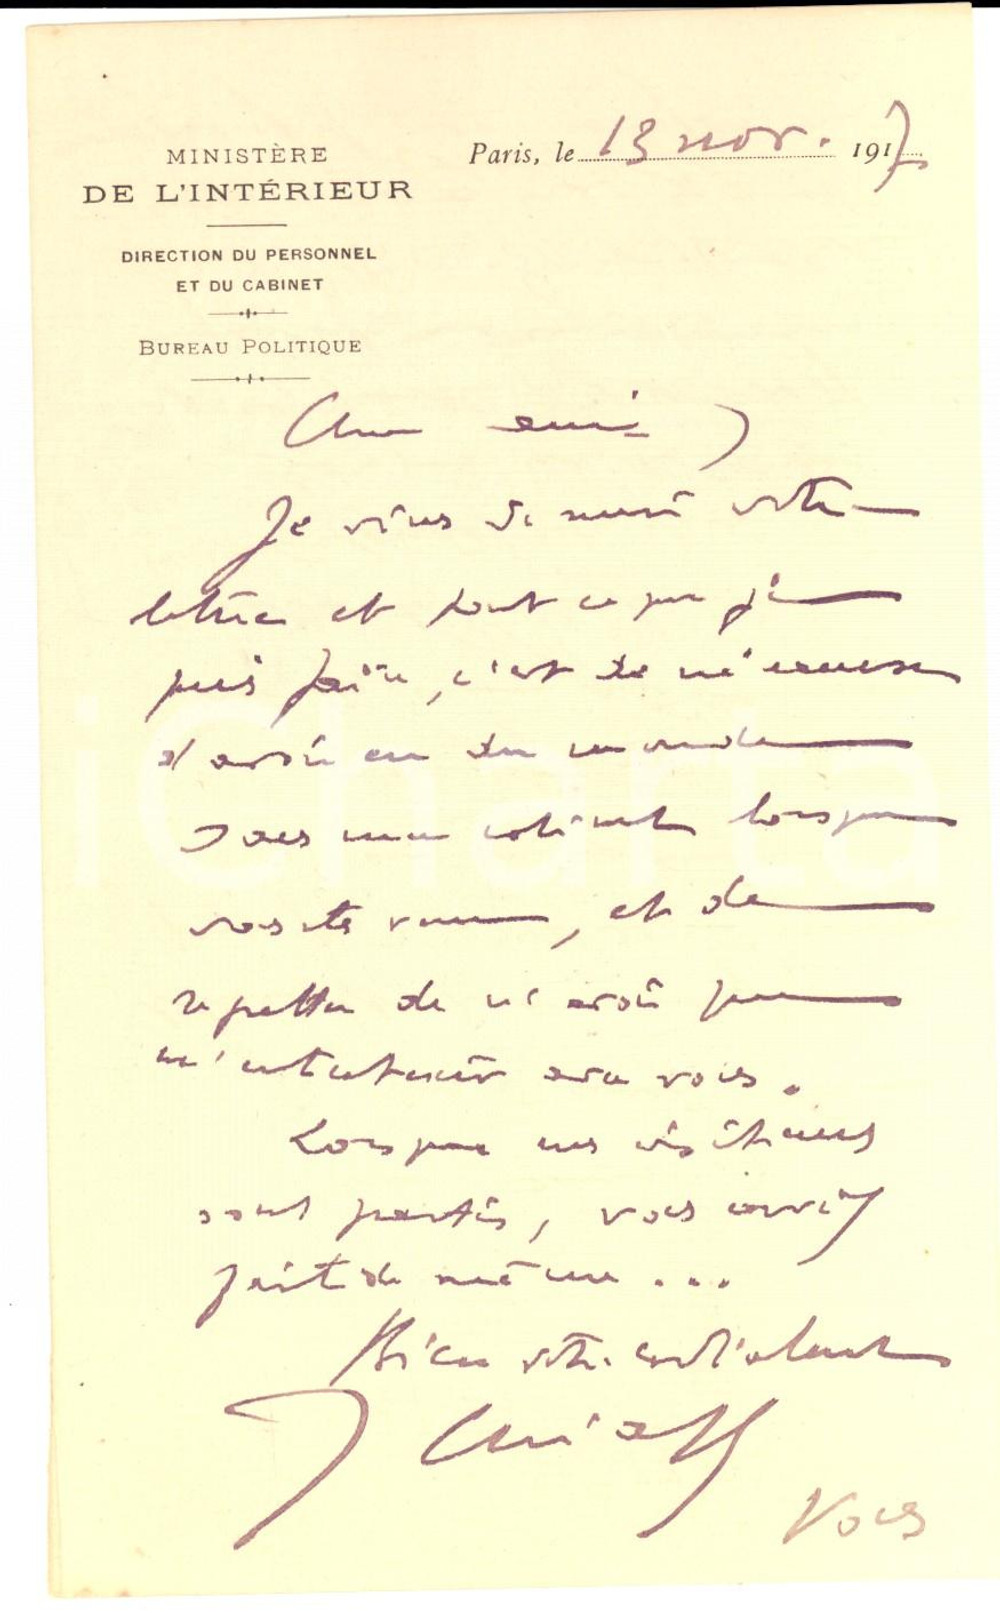 MINISTÈRE
DE L'INTÉRIEUR
DIRECTION DU PERSONNEL
ET DU CABINET
BUREAU POLITIQUE
Paris, le 13 nov. 1917
Cher ami,
Je viens de votre
lettre et tout ce que je
puis faire, c'est de m'excuser
d'avoir eu du monde
dans mon cabinet lorsque
vous êtes venu, et de
regretter de n'avoir pu
m'entretenir avec vous.
Lorsque mes visiteurs
sont partis, vous aviez
fait de même...
Bien votre cordialement
Vous
iCharta